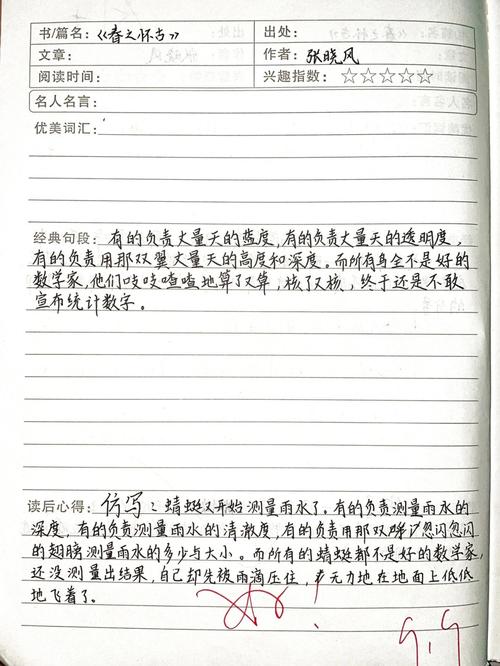 书/篇名：《春之怀古》 出处：
文章： 作者：张晓风
阅读时间： 兴趣指数：☆☆☆☆☆
名人名言：
优美词汇：
经典句段：有的负责丈量天的蓝度，有的负责丈量天的透明度，
有的负责用那双翼丈量天的高度和深度。而所有的全不是好的
数学家，他们吱吱喳喳地算了又算，核了又核，终于还是不敢
宣布统计数字。
读后心得：仿写：蜻蜓又开始测量雨水了。有的负责测量雨水的
深度，有的负责测量雨水的清澈度，有的负责用那双忽闪忽闪
的翅膀测量雨水的多少与大小。而所有的蜻蜓都不是好的数学家，
还没测量出结果，自己却先被雨滴压住，无力地在地面上低低
地飞着了。
9.9